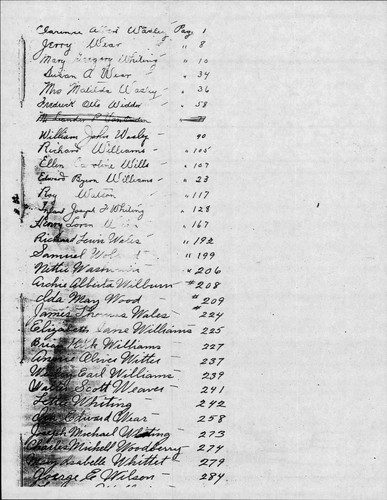 Clarence Albert Wasley Page 1
Jerry Wear " 8
Mary Gregory Whiting " 10
Susan A Wear " 34
Mrs Matilda Wasley " 36
Fredrick Otto Widder " 58
William John Wasley 90
Richard Williams " 105
Ellen Caroline Wills " 107
Edward Byron Williams " 23
Roy " 117
Joseph F Whiting " 128
Henry Loran " 167
Richard Lewis Wales " 192
Samuel " 199
Nettie " 206
Archie Alberta Wilburn # 208
Ida May Wood # 209
James Thomas Wales # 224
Elizabeth Jane Williams 225
Williams 227
Annie Oliver 237
Earl Williams 239
Scott Weaver 241
Whiting 242
Edward Wear 258
Joseph Michael Whiting 273
Charles Michell Woodberry 274
Mary Isabelle Whittet 279
George E Wilson 284